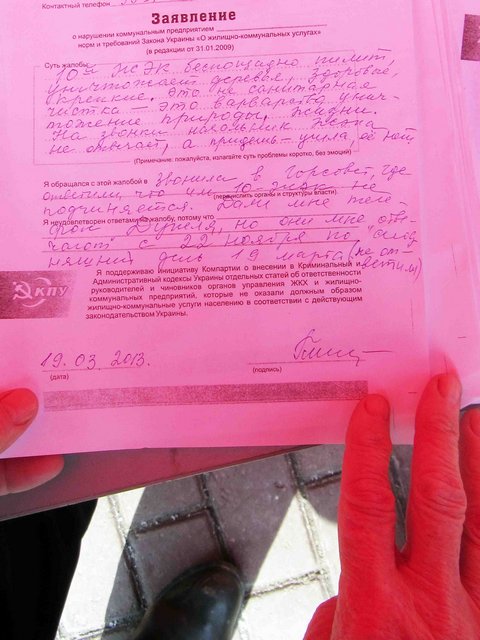 Контактный телефон
Заявление
о нарушении коммунальным предприятием
норм и требований Закона Украины «О жилищно-коммунальных услугах»
(в редакции от 31.01.2009)
Суть жалобы:
10й ЖЭК беспощадно пилит,
уничтожает деревья, здоровые,
крепкие. Это не санитарная
чистка – это варварство унич-
тожение природы, жизни.
На звонки начальник ЖЭКа
не отвечает, а придешь – ушла, её нет
(Примечание: пожалуйста, излагайте суть проблемы коротко, без эмоций)
Я обращался с этой жалобой в Звонила в Горсовет, где
(перечислить органы и структуры власти)
ответили что им 10-ЖЭК не
подчиняется. Дали мне теле-
Я неудовлетворен ответами на жалобу, потому что
фон но они мне отв-
с 22 ноября по сегод
няшний день 19 марта (не от-
ветили)
Я поддерживаю инициативу Компартии о внесении в Криминальный и
Административный кодексы Украины отдельных статей об ответственности
руководителей и чиновников органов управления ЖКХ и жилищно-
коммунальных предприятий, которые не оказали должным образом
жилищно-коммунальные услуги населению в соответствии с действующим
законодательством Украины.
КПУ
19.03.2013.
(дата)
(подпись)